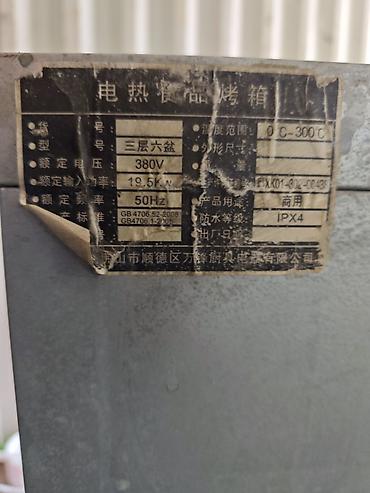 电热食品烤箱
货 号: 温度范围: 0℃-300℃
型 号: 三层六盆 外形尺寸:
额定电压: 380V 量:
额定输入功率: 19.5K
额定频率: 50Hz 产品用途: 商用
产标准: GB4706.52-2008 GB4706.1-2005 防水等级: IPX4
号: 出厂日
山市顺德区万 厨具电器有限公司